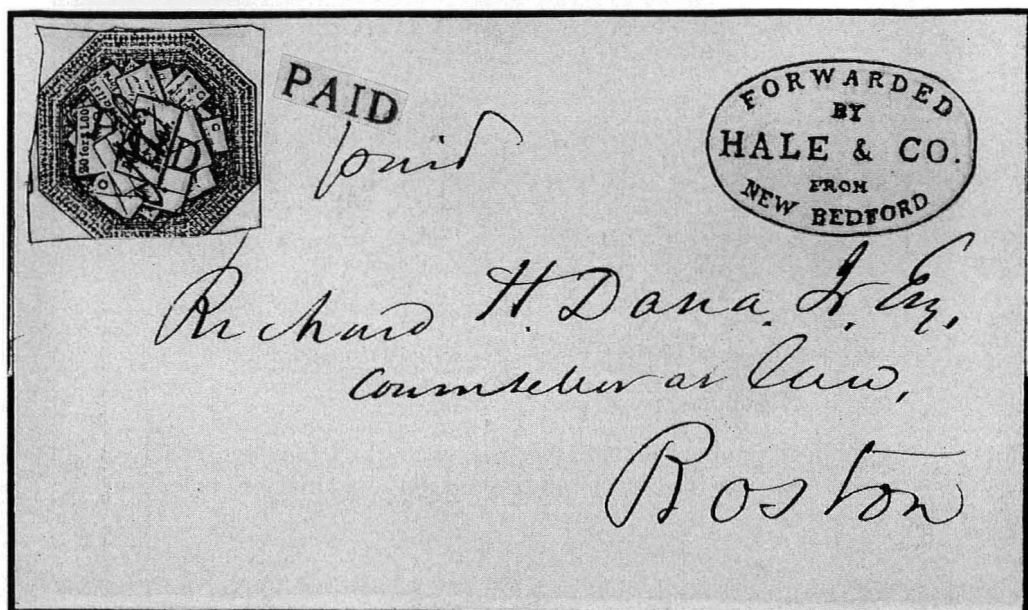 PAID
paid
FORWARDED
BY
HALE & CO.
FROM
NEW BEDFORD
20 for $1.00
PAID
Richard H. Dana. Jr. Esq.
Counsellor at Law,
Boston